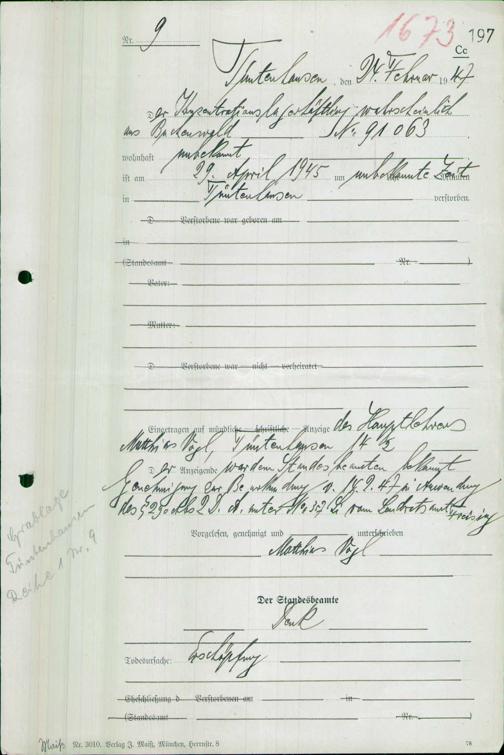 1673 197
Cc
Nr. 9
Tüntenhausen, den 24. Februar 1947
Der Konzentrationslagerhäftling wahrscheinlich
aus Buchenwald No 91063
wohnhaft unbekannt
ist am 29. April 1945 um unbekannte Zeit
in Tüntenhausen verstorben.
D Verstorbene war geboren am
in
(Standesamt Nr. )
Vater:
Mutter:
D Verstorbene war — nicht — verheiratet
Eingetragen auf mündliche — schriftliche — Anzeige des Hauptlehrers
Matthias Vogl, Tüntenhausen
Der Anzeigende worden Standesbeamten bekannt
Genehmigung zur Beurkundung v. 14.2.47 in Anwendung
vom Landratsamt Freising
Vorgelesen, genehmigt und unterschrieben
Matthias Vogl
Der Standesbeamte
Todesursache: Erschöpfung
Eheschließung d Verstorbenen am in
(Standesamt Nr. )
Grablage
Tüntenhausen
Reihe 1 Nr. 9
Maiß Nr. 3010. Verlag J. Maiß, München, Herrnstr. 8
78